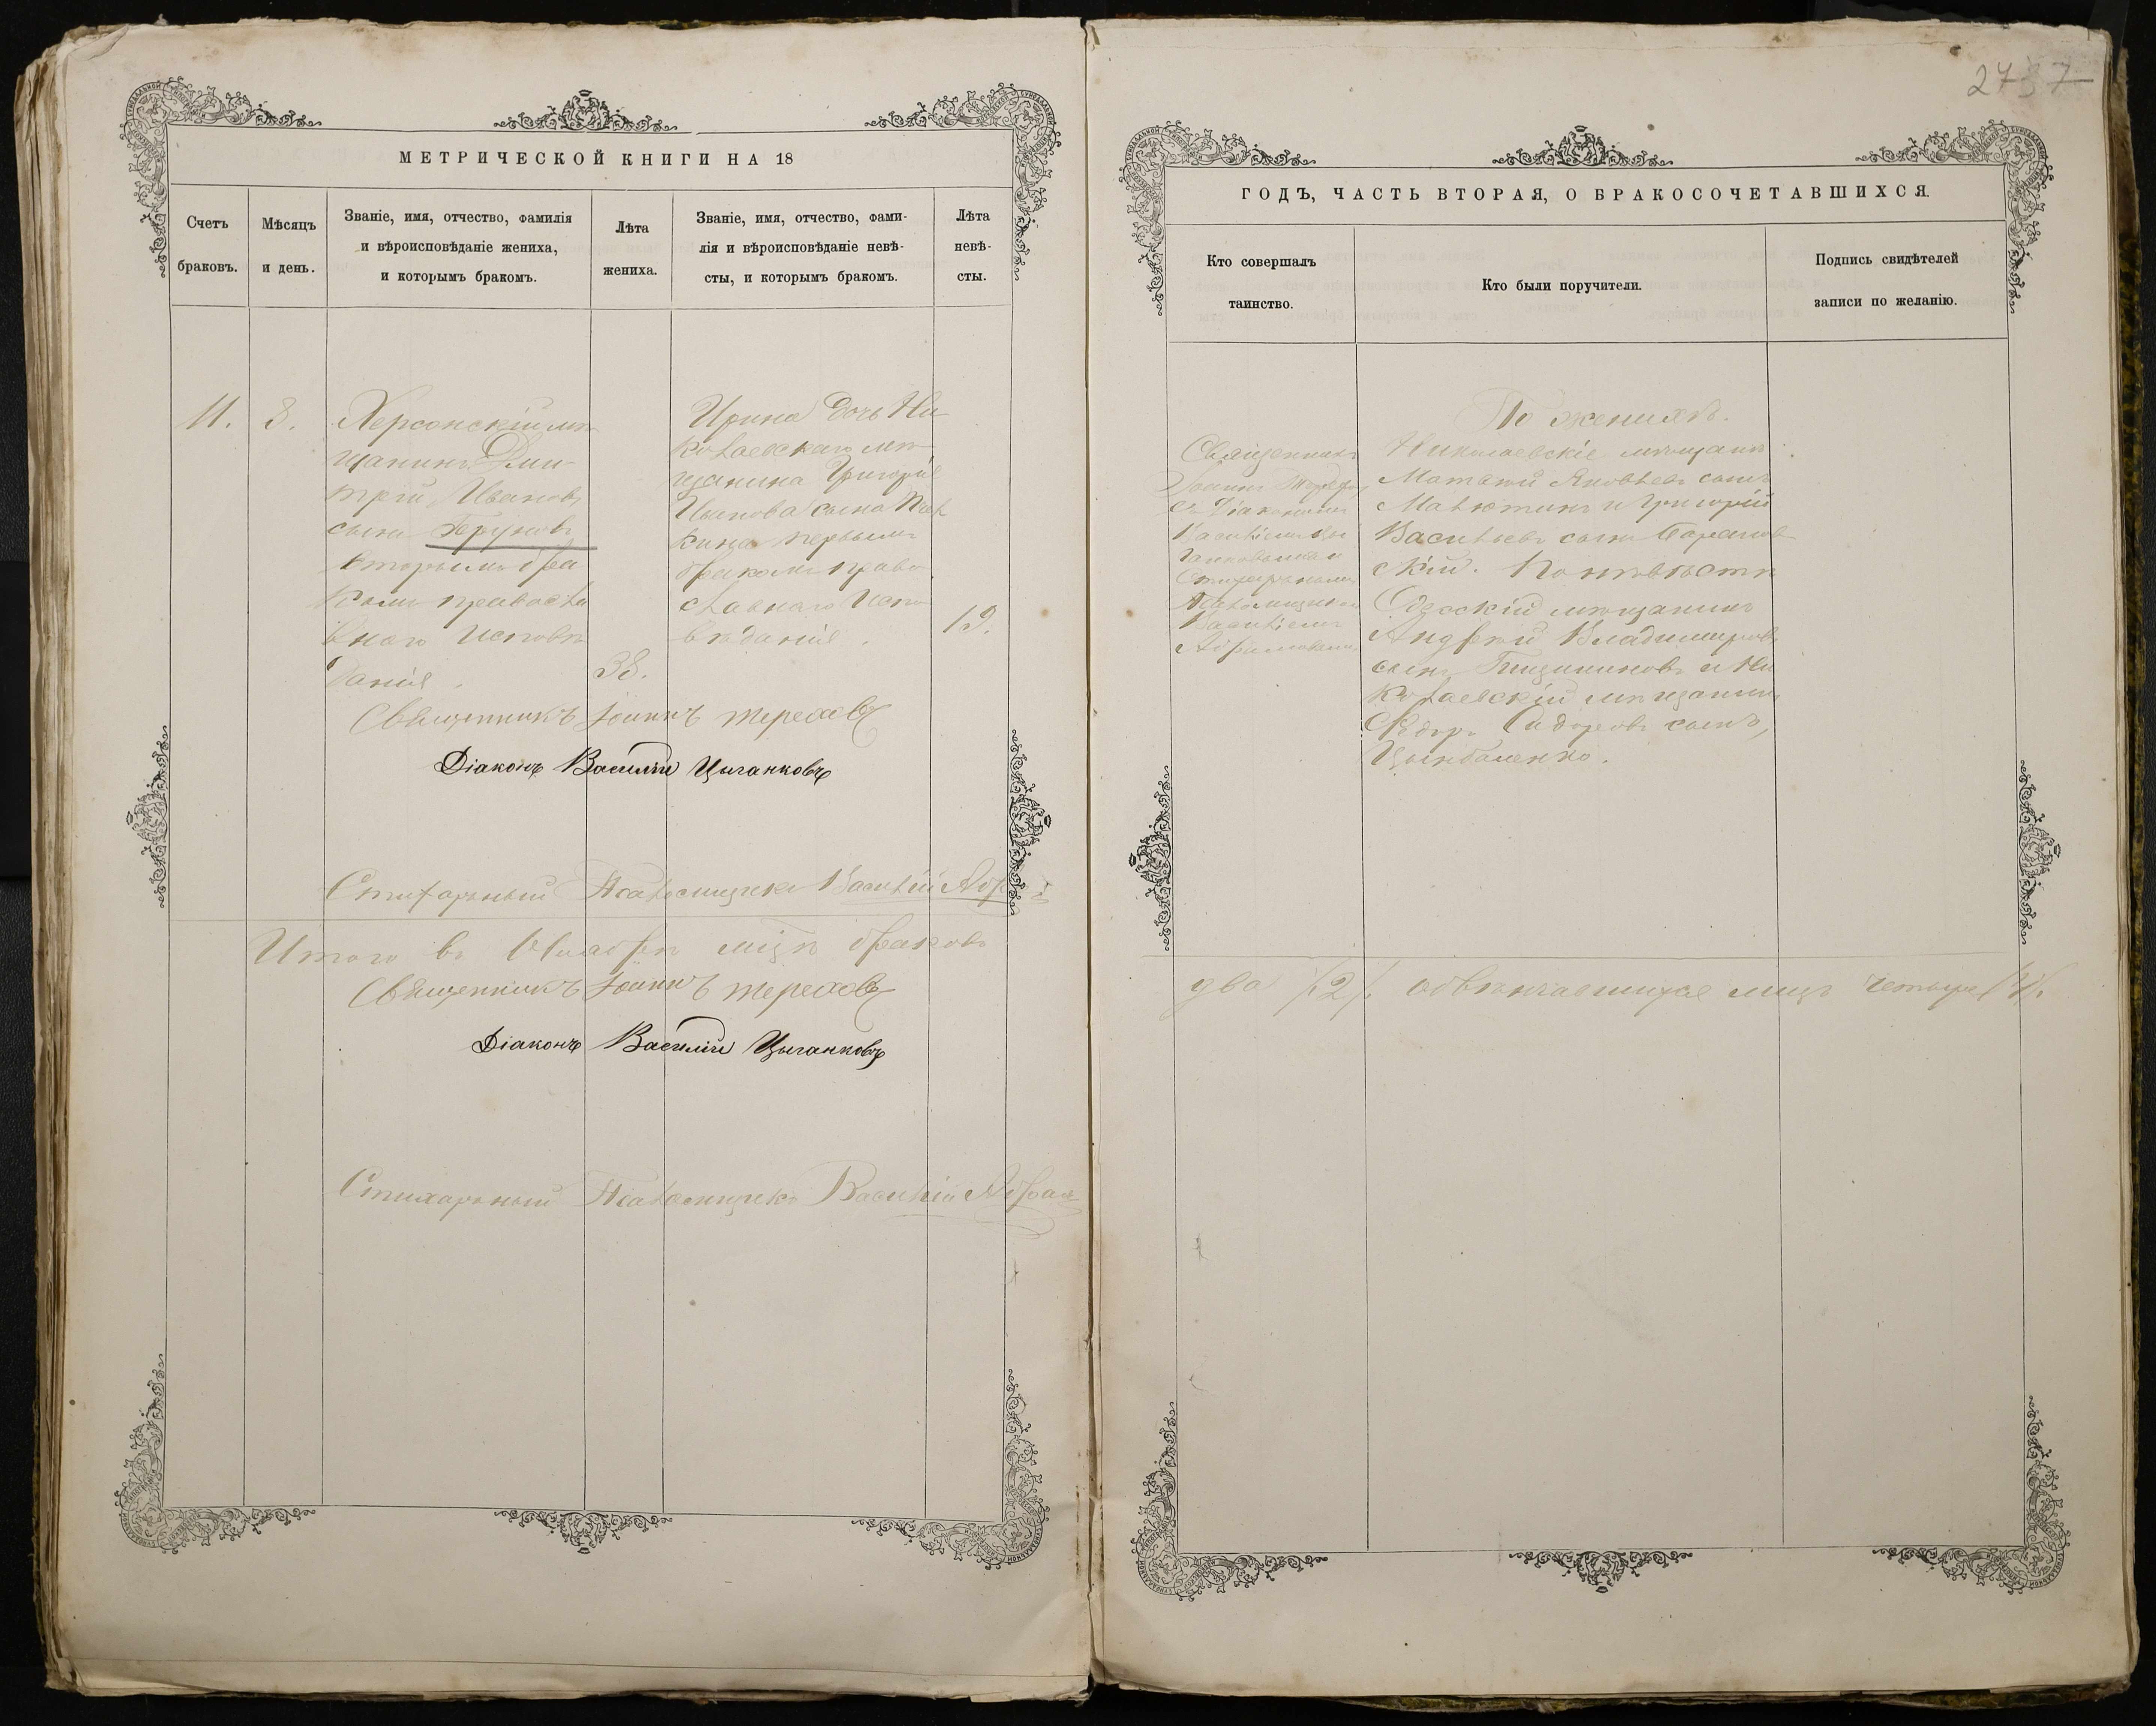 МЕТРИЧЕСКОЙ КНИГИ НА 18
Счетъ браковъ.
Мѣсяцъ и день.
Званіе, имя, отчество, фамилія
и вѣроисповѣданіе жениха,
и которымъ бракомъ.
Лѣта жениха.
Званіе, имя, отчество, фами-
лія и вѣроисповѣданіе невѣ-
сты, и которымъ бракомъ.
Лѣта невѣ-
сты.
11.
8.
Херсонскій мѣ
щанинъ Дми
трій Ивановъ
сынъ
вторымъ бра
комъ правосла
внаго исповѣ
данія.
38.
Ирина дочь Ни
колаевскаго мѣ
щанина Григорія
сына
кина первымъ
бракомъ право
славнаго испо
вѣданія.
19.
Священникъ Іоаннъ Тереховъ
Діаконъ Василій Цыганковъ
Стихарный Псаломщикъ Василій
Итого въ мцѣ браковъ
Священникъ Іоаннъ Тереховъ
Діаконъ Василій Цыганковъ
Стихарный Псаломщикъ Василій
2737
ГОДЪ, ЧАСТЬ ВТОРАЯ, О БРАКОСОЧЕТАВШИХСЯ.
Кто совершалъ
таинство.
Кто были поручители.
Подпись свидѣтелей
записи по желанію.
Священникъ
Іоаннъ Терехов
съ Діакономъ
Василіемъ Цы
ганковымъ и
Стихарнымъ
Псаломщикомъ
Василіемъ
По женихѣ.
Николаевскіе мѣщане
Матвѣй Яковлевъ сынъ
Малютинъ и Григорій
Васильевъ сынъ
скій. По невѣстѣ
Одесскій мѣщанинъ
Андрей Владимировъ
сынъ и Ни
колаевскій мѣщанинъ
Ѳедоръ Сидоровъ сынъ
Цымбаленко.
два /2/. обвѣнчавшихся лицъ четыре /4/.